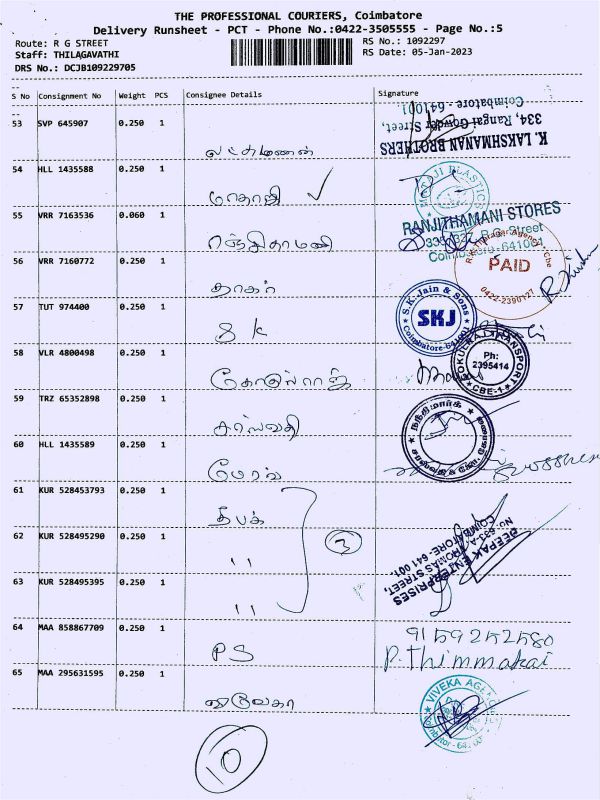 THE PROFESSIONAL COURIERS, Coimbatore
Delivery Runsheet - PCT - Phone No.:0422-3505555 - Page No.:5
Route: R G STREET
RS No.: 1092297
Staff: THILAGAVATHI
RS Date: 05-Jan-2023
DRS No.: DCJB109229705
S No Consignment No Weight PCS Consignee Details Signature
53 SVP 645907 0.250 1
லட்சுமணன்
K. LAKSHMANAN BROTHERS
334, Rangai Gowder Street,
Coimbatore - 641001.
54 HLL 1435588 0.250 1
மாதாஜி ✓
PLASTICS
55 VRR 7163536 0.060 1
ரஞ்சிதாமணி
RANJITHAMANI STORES
R.G. Street
Coimbatore-641001.
56 VRR 7160772 0.250 1
தாகர்
PAID
0422-2390127
57 TUT 974400 0.250 1
S K
S.K. Jain & Sons
SKJ
Coimbatore-641001
58 VLR 4800498 0.250 1
கோகுல்ராஜ்
GOKULRAJ TRANSPORT
Ph:
2395414
CBE-1
59 TRZ 65352898 0.250 1
சரஸ்வதி
நந்திமார்க்
60 HLL 1435589 0.250 1
61 KUR 528453793 0.250 1
தீபக்
62 KUR 528495290 0.250 1
"
3
63 KUR 528495395 0.250 1
"
DEEPAK ENTERPRISES
NO. 633-A, THOMAS STREET,
COIMBATORE- 641 001.
64 MAA 858867709 0.250 1
PS
9159252580
P. Thimmakai
65 MAA 295631595 0.250 1
விவேகா
VIVEKA AGENCIES
10